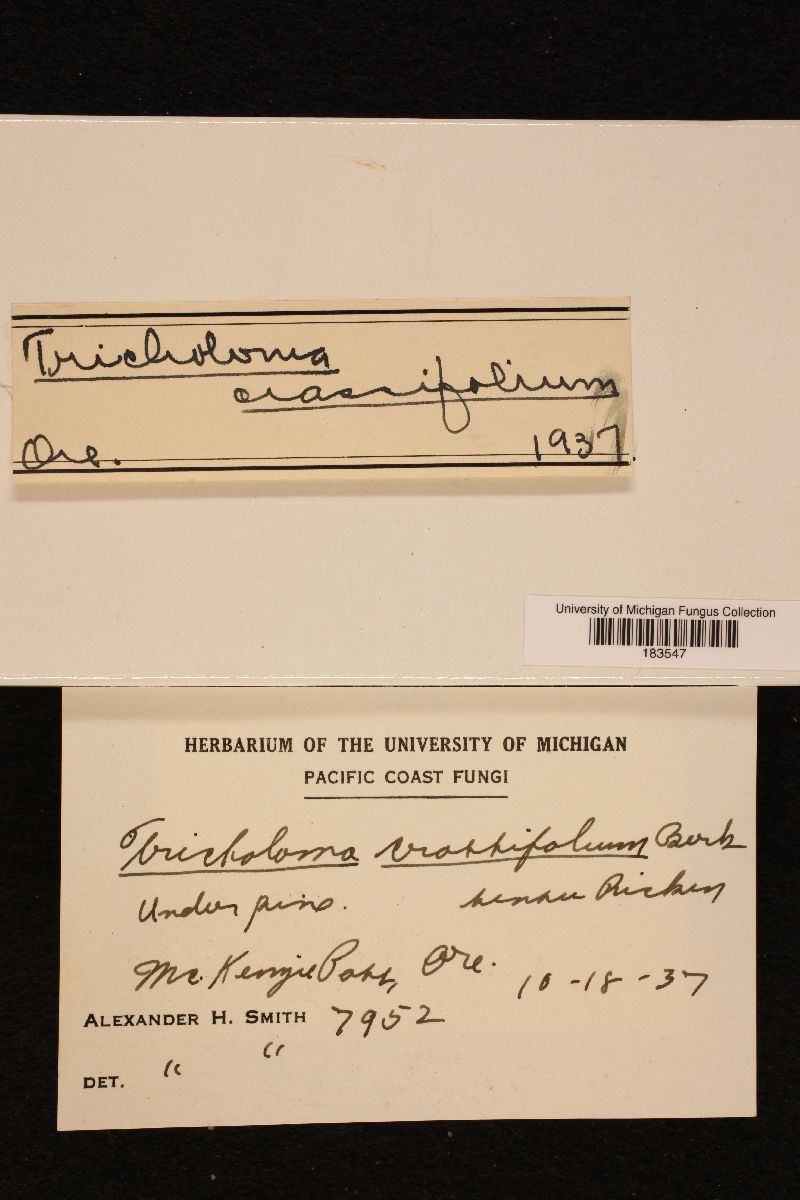 Tricholoma
crassifolium
Ore. 1937.
University of Michigan Fungus Collection
183547
HERBARIUM OF THE UNIVERSITY OF MICHIGAN
PACIFIC COAST FUNGI
Tricholoma crassifolium Berk
Under pine. sensu Ricken
McKenzie Pass, Ore. 10-18-37
ALEXANDER H. SMITH 7952
DET. " "